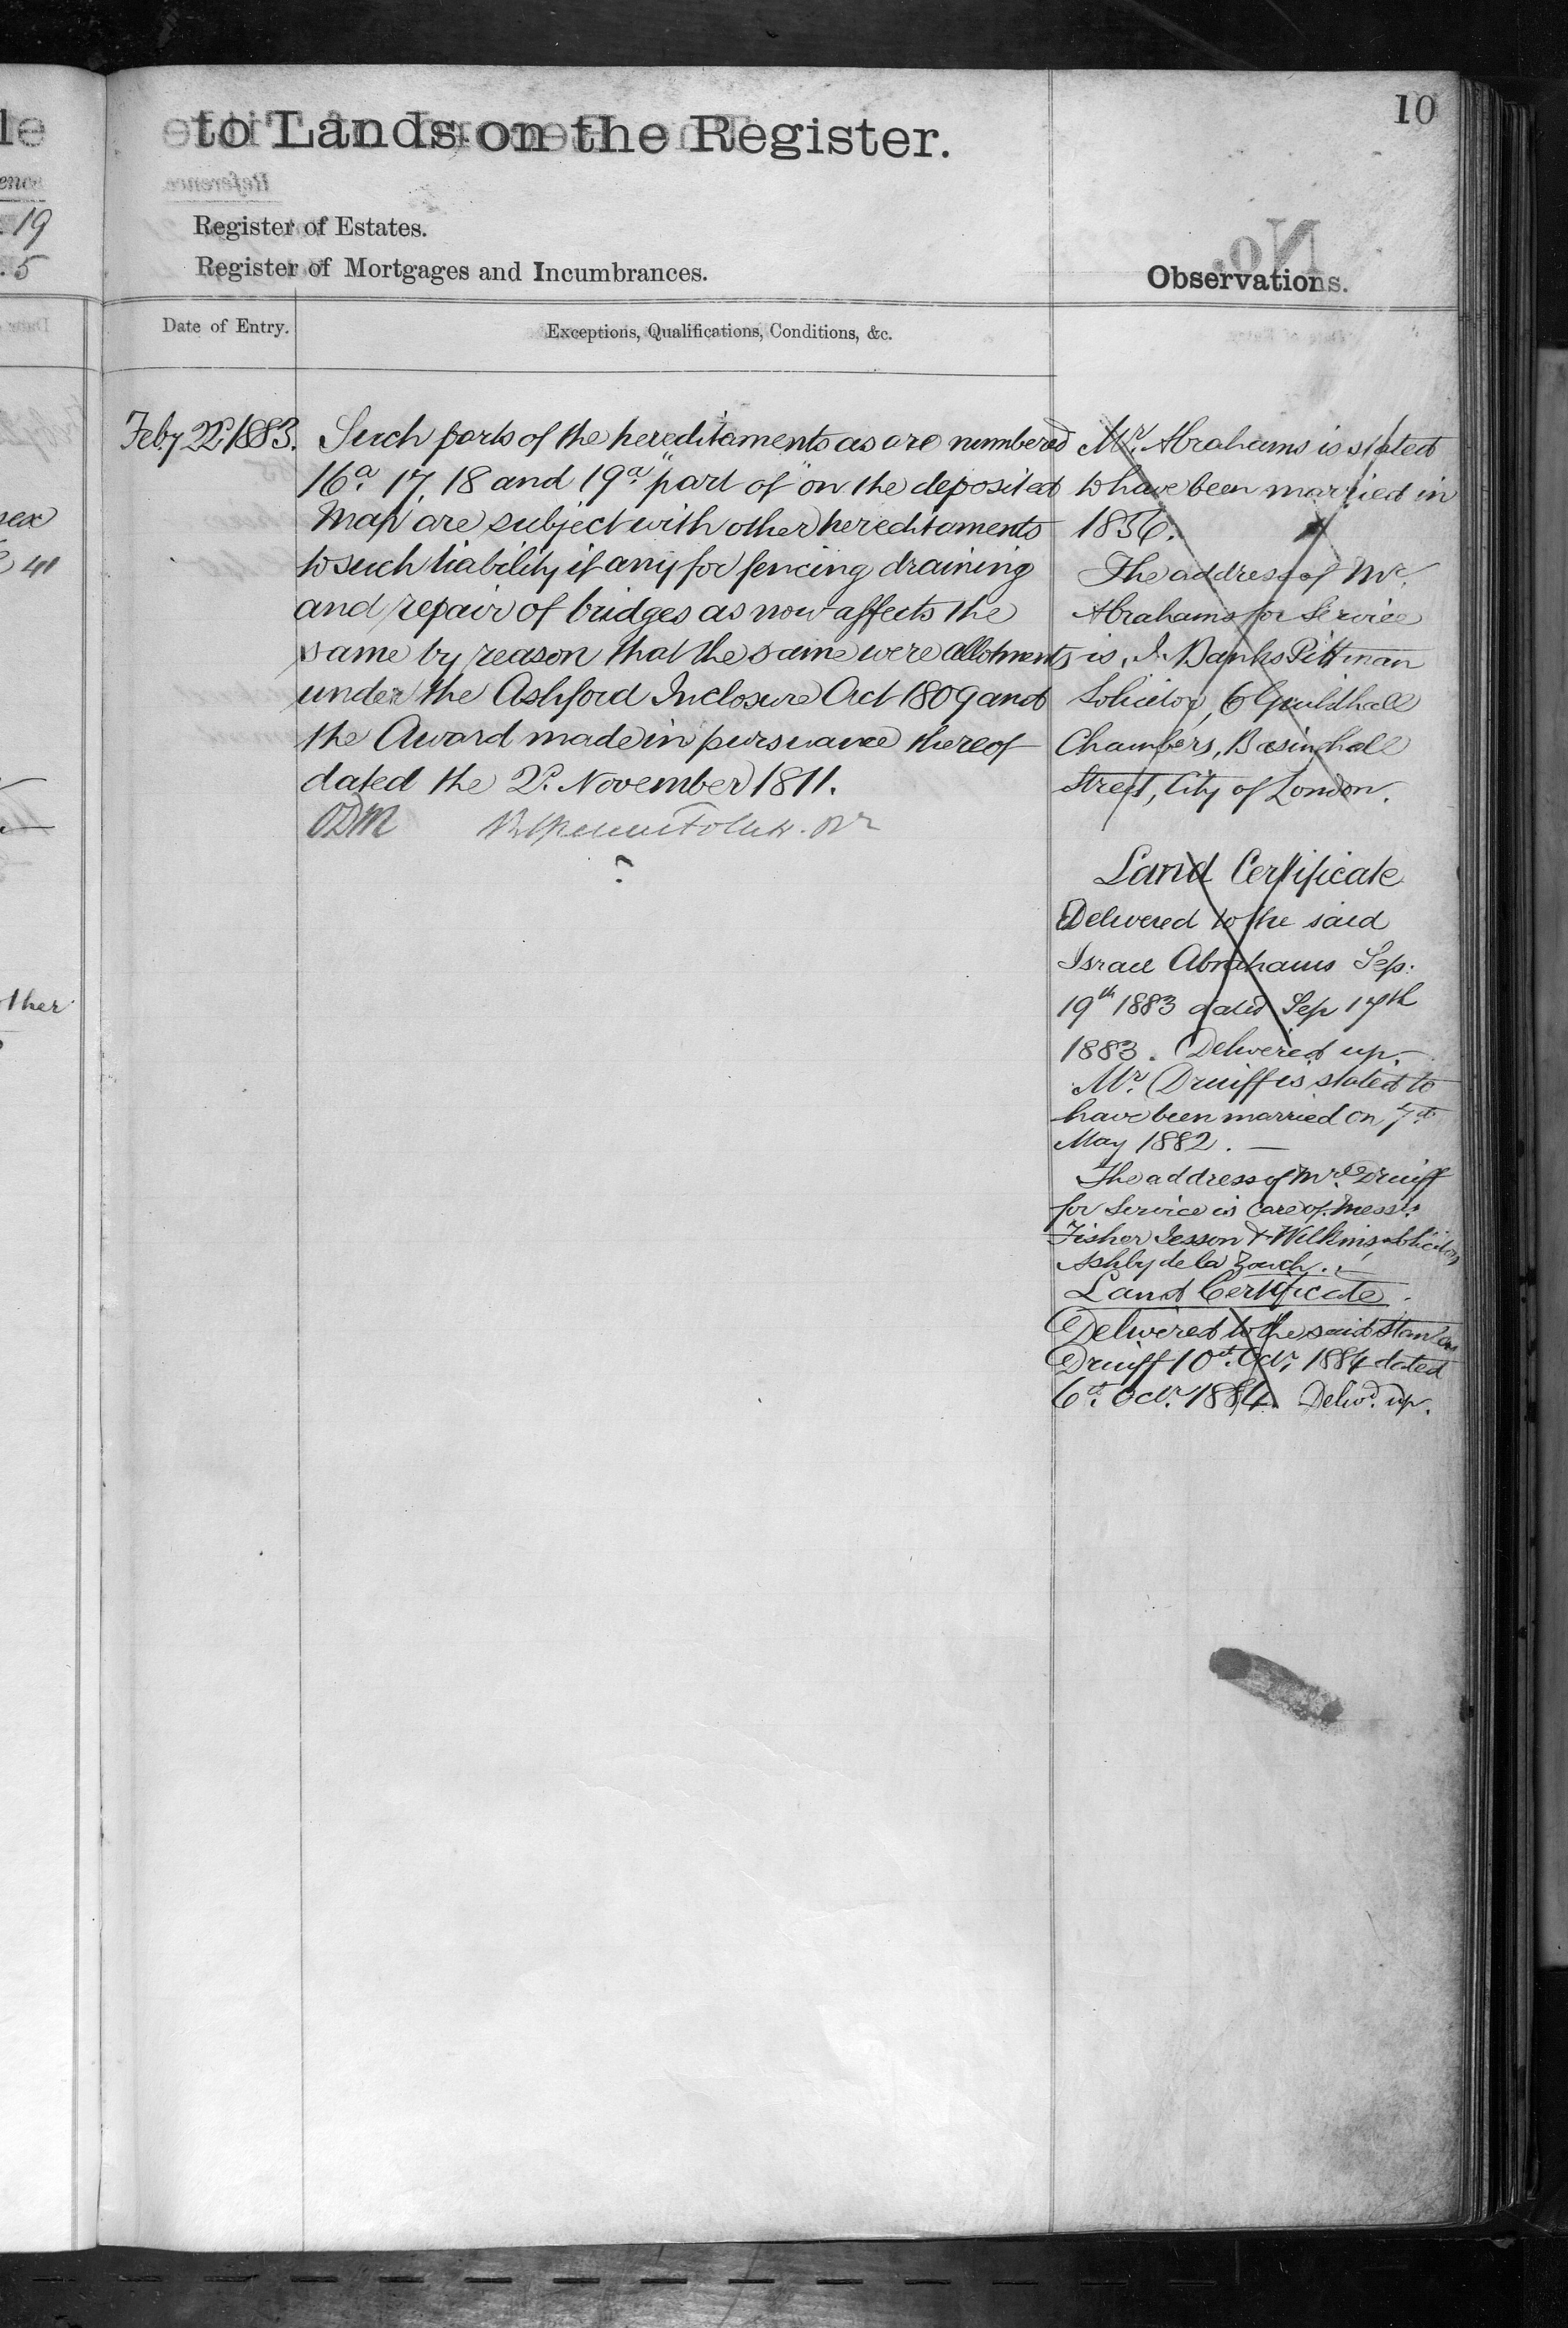 10
to Lands on the Register.
Register of Estates.
Register of Mortgages and Incumbrances.
Observations.
Date of Entry.
Exceptions, Qualifications, Conditions, &c.
19
5
sex
41
ther
Feby 22d. 1883.
Such parts of the hereditaments as are numbered
16a. 17, 18 and 19a. "part of" on the deposited
Map are subject with other hereditaments
to such liability if any for fencing draining
and repair of bridges as now affects the
same by reason that the same were allotments
under the Ashford Inclosure Act 1809 and
the Award made in pursuance thereof
dated the 2d. November 1811.
ODM
?
Mr. Abrahams is stated
to have been married in
1856.
The address of Mr.
Abrahams for Service
is, J. Banks Pittman
Solicitor, 6 Guildhall
Chambers, Basinghall
Street, City of London.
Land Certificate
Delivered to the said
Israel Abrahams Sep.
19th 1883 dated Sep 17th
1883. Delivered up.
Mr. Druiff is stated to
have been married on 7th
May 1882. —
The address of Mr. Druiff
for Service is care of Messrs.
Fisher Jesson & Wilkins, Solicitors
Ashby de la Zouch. —
Land Certificate.
Delivered to the said
Druiff 10th. Octr. 1884 dated
6th. Octr. 1884. Delivd. up.